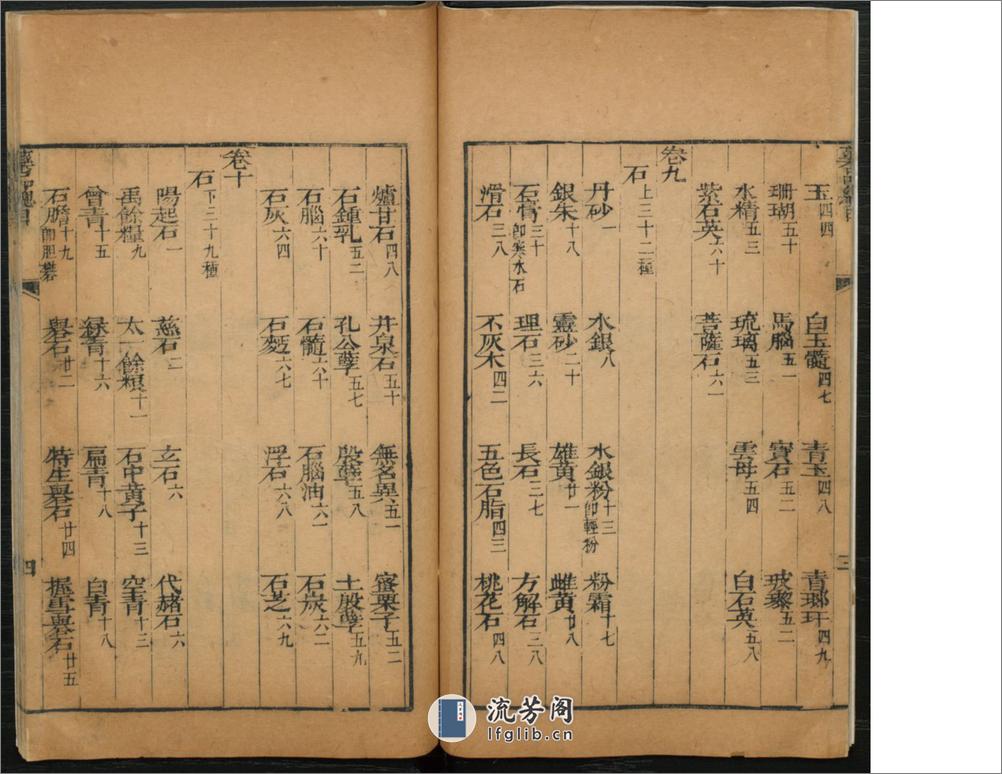 玉四四 白玉髓四七 青玉四八 青瑯玕四九
珊瑚五十 馬腦五一 寶石五二 玻瓈五二
水精五三 琉璃五三 雲母五四 白石英五八
紫石英六十 菩薩石六一
卷九
石上三十二種
丹砂一 水銀八 水銀粉十三即輕粉 粉霜十七
銀朱十八 靈砂二十 雄黃廿一 雌黃廿八
石膏三十即寒水石 理石三六 長石三七 方解石三八
滑石三八 不灰木四二 五色石脂四三 桃花石四八
爐甘石四八 井泉石五十 無名異五一 蜜栗子五二
石鍾乳五二 孔公孽五七 殷孽五八 土殷孽五九
石腦六十 石髓六十 石腦油六一 石炭六二
石灰六四 石麪六七 浮石六八 石芝六九
卷十
石下三十九種
陽起石一 慈石二 玄石六 代赭石六
禹餘糧九 太一餘粮十一 石中黄子十三 空青十三
曾青十五 緑青十六 扁青十八 白青十八
石膽十九即胆礬 礜石廿二 特生礜石廿四 握雪礜石廿五
三
四
流芳阁
lfglib.cn